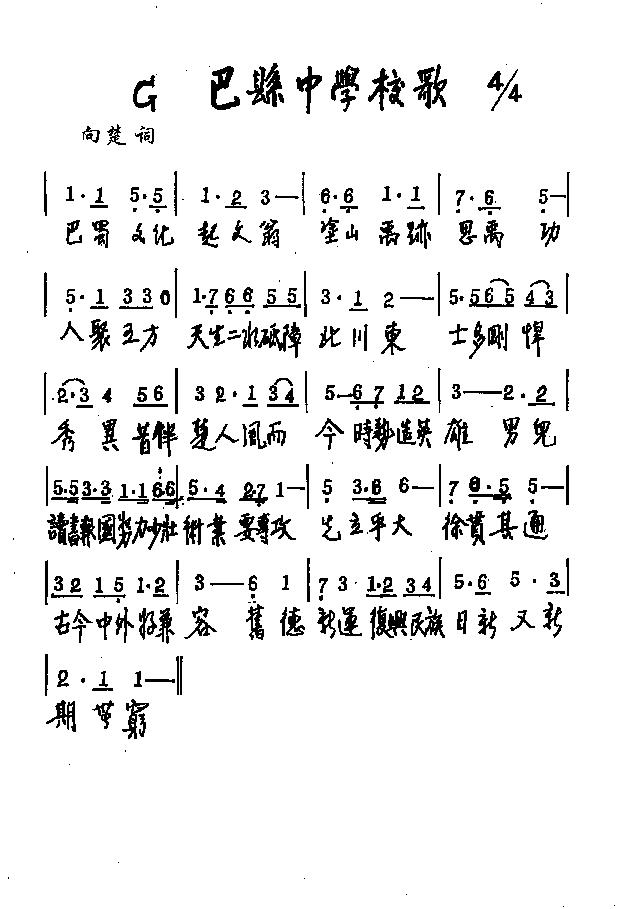 G 巴縣中學校歌 4/4
向楚 词
1·1 5·5 | 1·2 3— | 6·6 1·1 | 7·6 5—
巴蜀 文化 起文翁 塗山 禹跡 思禹 功
5·1 330 | 1·766 55 | 3·1 2— | 5·565 43
人聚五方 天生二水砥障 北川東 士多剛悍
2·3 4 56 | 3 2·1 34 | 5—67 12 | 3—2·2
秀異昔伴 楚人風而 今時勢造英 雄 男兒
5·53·3 1·166 | 5·4 2·7 1— | 5 3·6 6— | 7 6·5 5—
讀書報國努力 術業要專攻 先立乎大 徐貫其通
32 15 1·2 | 3—6 1 | 73 1·2 34 | 5·6 5·3
古今中外兼 容 舊德 新運 復興民族 日新又新
2·1 1—
期無窮